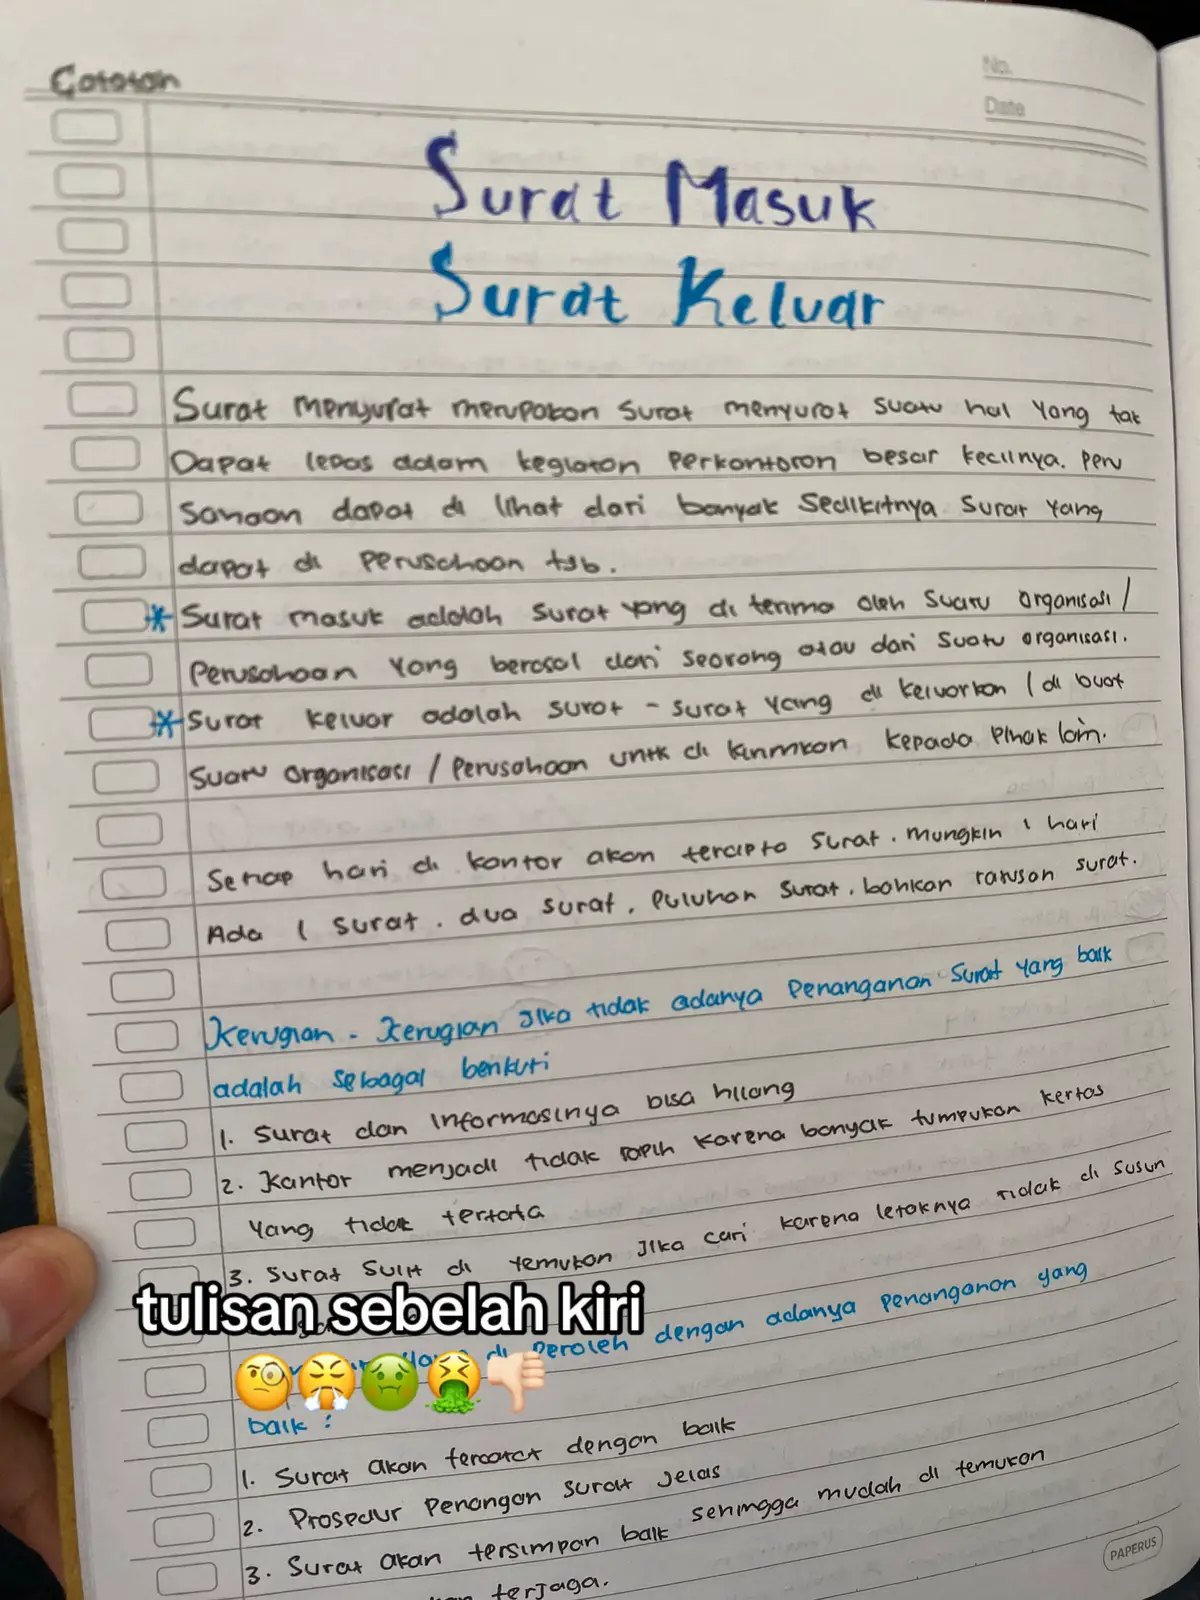 Catatan
No.
Date
Surat Masuk
Surat Keluar
Surat menyurat merupakan surat menyurat suatu hal yang tak
Dapat lepas dalam kegiatan perkantoran besar kecilnya. Peru
sahaan dapat di lihat dari banyak sedikitnya surat yang
dapat di peruschaan tsb.
* Surat masuk adalah surat yang di terima oleh suatu organisasi /
Perusahaan yang berasal dari seorang atau dari suatu organisasi.
* Surat keluar adalah surat - surat yang di keluarkan / di buat
suatu organisasi / perusahaan untk di kirimkan kepada pihak lain.
Setiap hari di kantor akan tercipta surat. mungkin 1 hari
Ada 1 surat. dua surat, puluhan surat, bahkan ratusan surat.
Kerugian - Kerugian jika tidak adanya penanganan surat yang baik
adalah sebagai berikuti
1. Surat dan informasinya bisa hilang
2. Kantor menjadi tidak rapih karena banyak tumpukan kertas
yang tidak tertata
3. Surat sulit di temukan jika cari karena letaknya tidak di susun
tulisan sebelah kiri
di peroleh dengan adanya penanganan yang
baik :
1. Surat akan tercatat dengan baik
2. Prosedur penangan surat jelas
3. Surat akan tersimpan baik sehingga mudah di temukan
terjaga.
PAPERUS